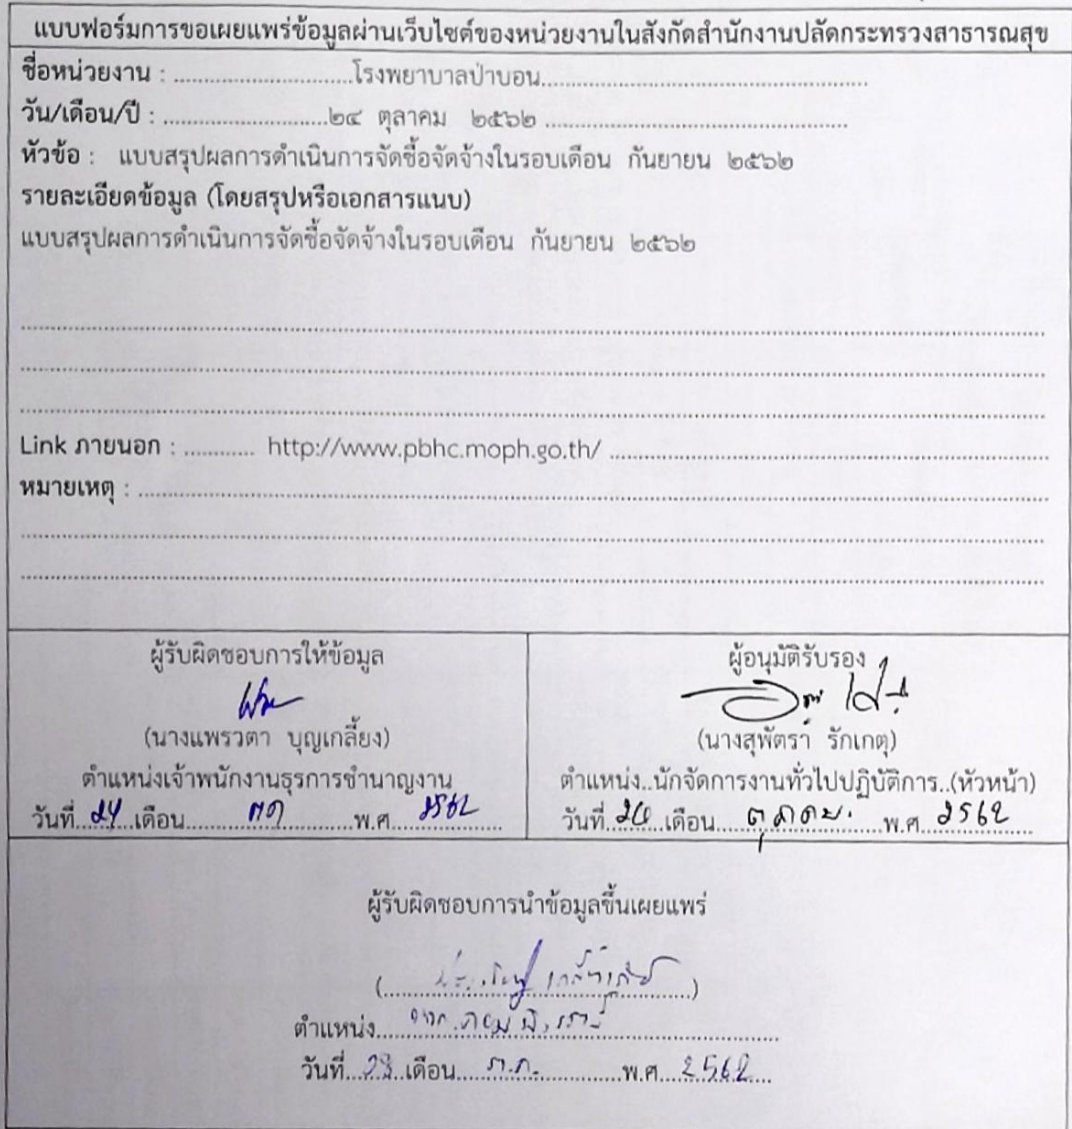 แบบฟอร์มการขอเผยแพร่ข้อมูลผ่านเว็บไซต์ของหน่วยงานในสังกัดสำนักงานปลัดกระทรวงสาธารณสุข
ชื่อหน่วยงาน : ..............................โรงพยาบาลป่าบอน.......................................................
วัน/เดือน/ปี : ............................๒๔ ตุลาคม ๒๕๖๒ ...................................................
หัวข้อ : แบบสรุปผลการดำเนินการจัดซื้อจัดจ้างในรอบเดือน กันยายน ๒๕๖๒
รายละเอียดข้อมูล (โดยสรุปหรือเอกสารแนบ)
แบบสรุปผลการดำเนินการจัดซื้อจัดจ้างในรอบเดือน กันยายน ๒๕๖๒
Link ภายนอก : ............ http://www.pbhc.moph.go.th/ ..........................................................................
หมายเหตุ : ..........................................................................
ผู้รับผิดชอบการให้ข้อมูล
(นางแพรวตา บุญเกลี้ยง)
ตำแหน่งเจ้าพนักงานธุรการชำนาญงาน
วันที่ 24 เดือน ตค พ.ศ. 2562
ผู้อนุมัติรับรอง
(นางสุพัตรา รักเกตุ)
ตำแหน่ง..นักจัดการงานทั่วไปปฏิบัติการ..(หัวหน้า)
วันที่ เดือน ตุลาคม. พ.ศ. 2562
ผู้รับผิดชอบการนำข้อมูลขึ้นเผยแพร่
ตำแหน่ง
วันที่ เดือน ต.ค. พ.ศ. 2562